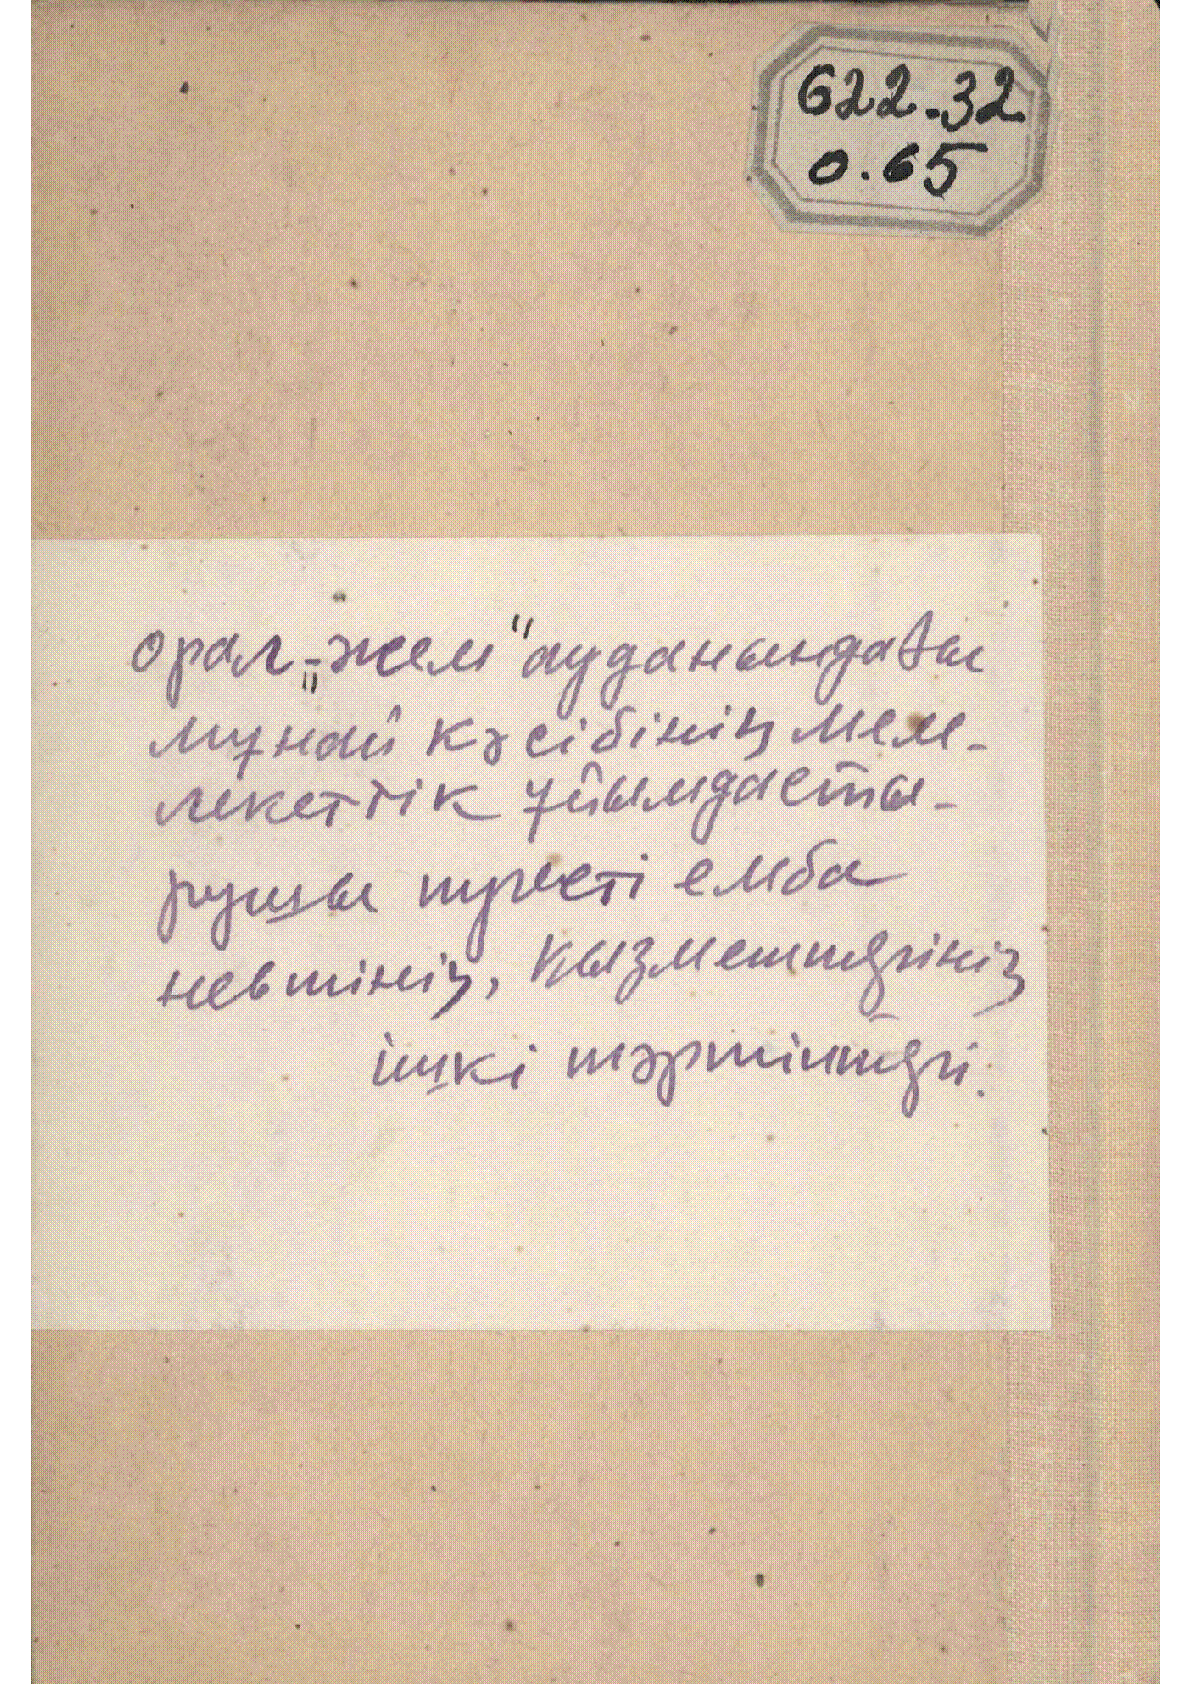 622-32
0.65
Орал „-жем" ауданындағы
мұнай кәсібінің мем-
лекеттік ұйымдасты-
рушы тресті емба
невтінің, қызметшілерінің
ішкі тәртіптері.